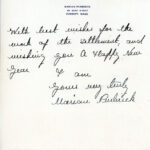 With best wishes for the
work of the settlement, and
wishing you a Happy New
Year I am
Yours very truly
Marian